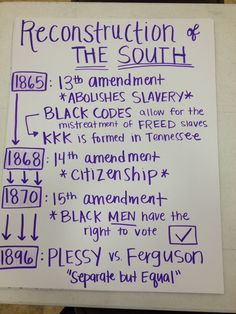 Reconstruction of
THE SOUTH
1865: 13th amendment
*ABOLISHES SLAVERY*
BLACK CODES allow for the
mistreatment of FREED slaves
KKK is formed in Tennessee
1868: 14th amendment
*Citizenship*
1870: 15th amendment
*BLACK MEN have the
right to vote
1896: PLESSY vs. Ferguson
"Separate but Equal"